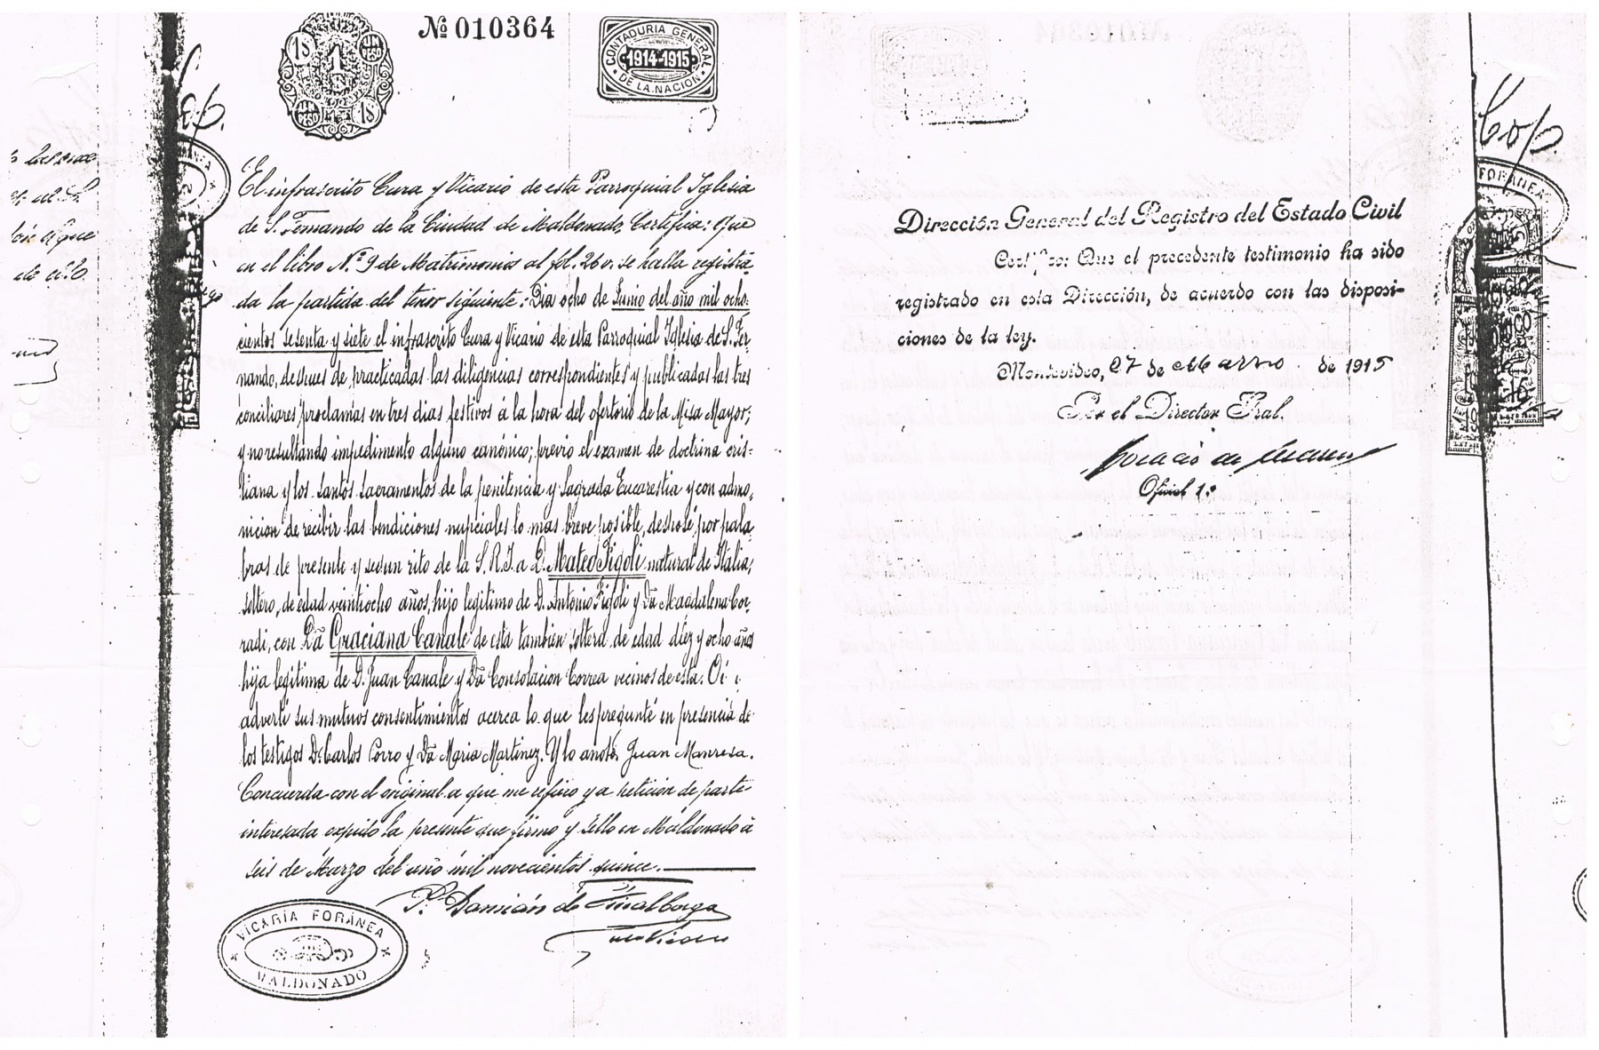 Nº 010364
1$
UN PESO
1$
CONTADURIA GENERAL
1914-1915
DE LA NACION
Cop.
FORÁNEA
El infrascrito Cura y Vicario de esta Parroquial Iglesia
de S. Fernando de la Ciudad de Maldonado, Certifica: Que
en el libro Nº 9 de Matrimonios al fol. 26 v. se halla registra
da la partida del tenor siguiente: Dia ocho de Junio del año mil ocho-
cientos sesenta y siete el infrascrito Cura y Vicario de esta Parroquial Iglesia de S. Fer-
nando, despues de practicadas las diligencias correspondientes y publicadas las tres
conciliares proclamas en tres dias festivos á la hora del ofertorio de la Misa Mayor;
y no resultando impedimento alguno canónico; previo el examen de doctrina cris-
tiana y los santos sacramentos de la penitencia y Sagrada Eucarestia y con admo-
nicion de recibir las bendiciones nupciales lo mas breve posible, desposé por pala-
bras de presente y segun rito de la S. R. I. a D. Mateo Figoli natural de Italia,
soltero, de edad veintiocho años, hijo legitimo de D. Antonio Figoli y Dª Magdalena Cor-
radi, con Dª Graciana Canale de esta tambien soltera de edad diez y ocho años
hija legitima de D. Juan Canale y Dª Consolacion Correa vecinos de esta. Oi i
adverti sus mutuos consentimientos acerca lo que les pregunté en presencia de
los testigos D. Carlos Corro y Dª Maria Martinez. Y lo anoté. Juan Manresa.
Concuerda con el original a que me refiero y a peticion de parte
interesada expido la presente que firmo y sello en Maldonado á
seis de Marzo del año mil novecientos quince.
P. Damián de Finalborgo
VICARÍA FORÁNEA
MALDONADO
Cop.
FORÁNEA
Dirección General del Registro del Estado Civil
Certifico: Que el precedente testimonio ha sido
registrado en esta Dirección, de acuerdo con las disposi-
ciones de la ley.
Montevideo, 27 de Marzo de 1915
Por el Director Gral.
Oficial 1º